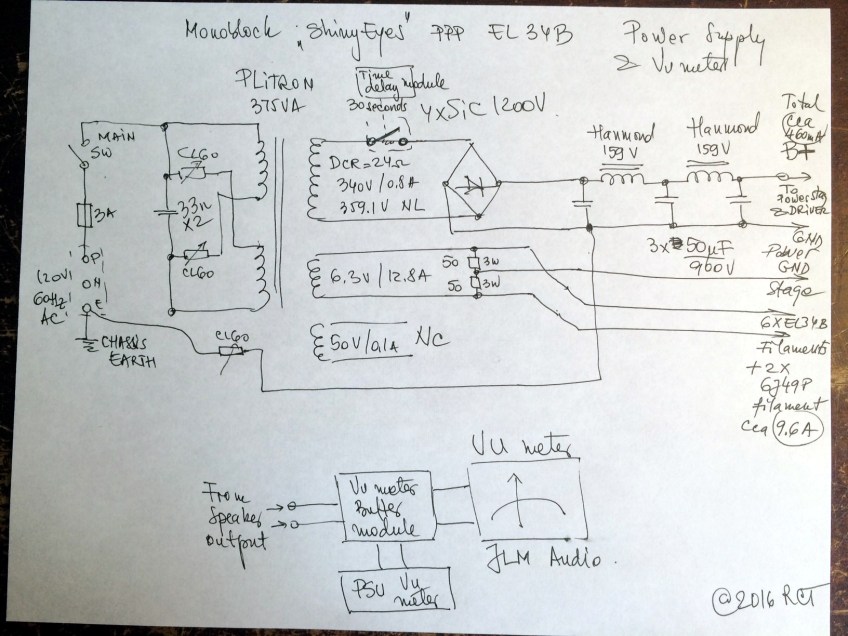 Monoblock "ShinyEyes" PPP EL34B
Power Supply
& Vu meter
PLiTRON
375VA
Time
delay module
30 seconds
4xSiC 1200V
MAIN
SW
3A
P
N
E
120V
60Hz
AC
CHASSIS
EARTH
CL60
33n
X2
CL60
CL60
DCR=24Ω
340V/0.8A
359.1V NL
6.3V/12.8A
50 3W
50 3W
50V/0.1A NC
Hammond
159V
Hammond
159V
3x 50µF
960V
Total
Cca
460mA
B+
To
Powerstag
& DRIVER
GND
Power
GND
Stage
6XEL34B
Filaments
+2x
6J49P
filament
cca 9.6A
From
Speaker
output
Vu meter
Buffer
module
PSU Vu
meter
VU meter
JLM Audio.
@2016 RCT